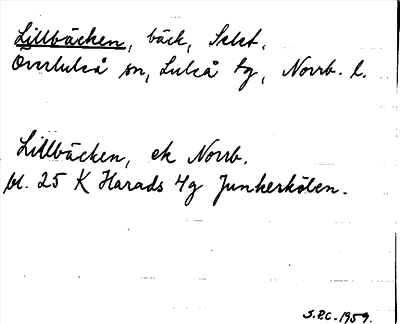 Lillbäcken, bäck, Selet.
Överluleå sn, Luleå tg, Norrb. l.
Lillbäcken, ek Norrb.
bl. 25 K Harads 4g Junkerkölen.
S.P.C. 1959.